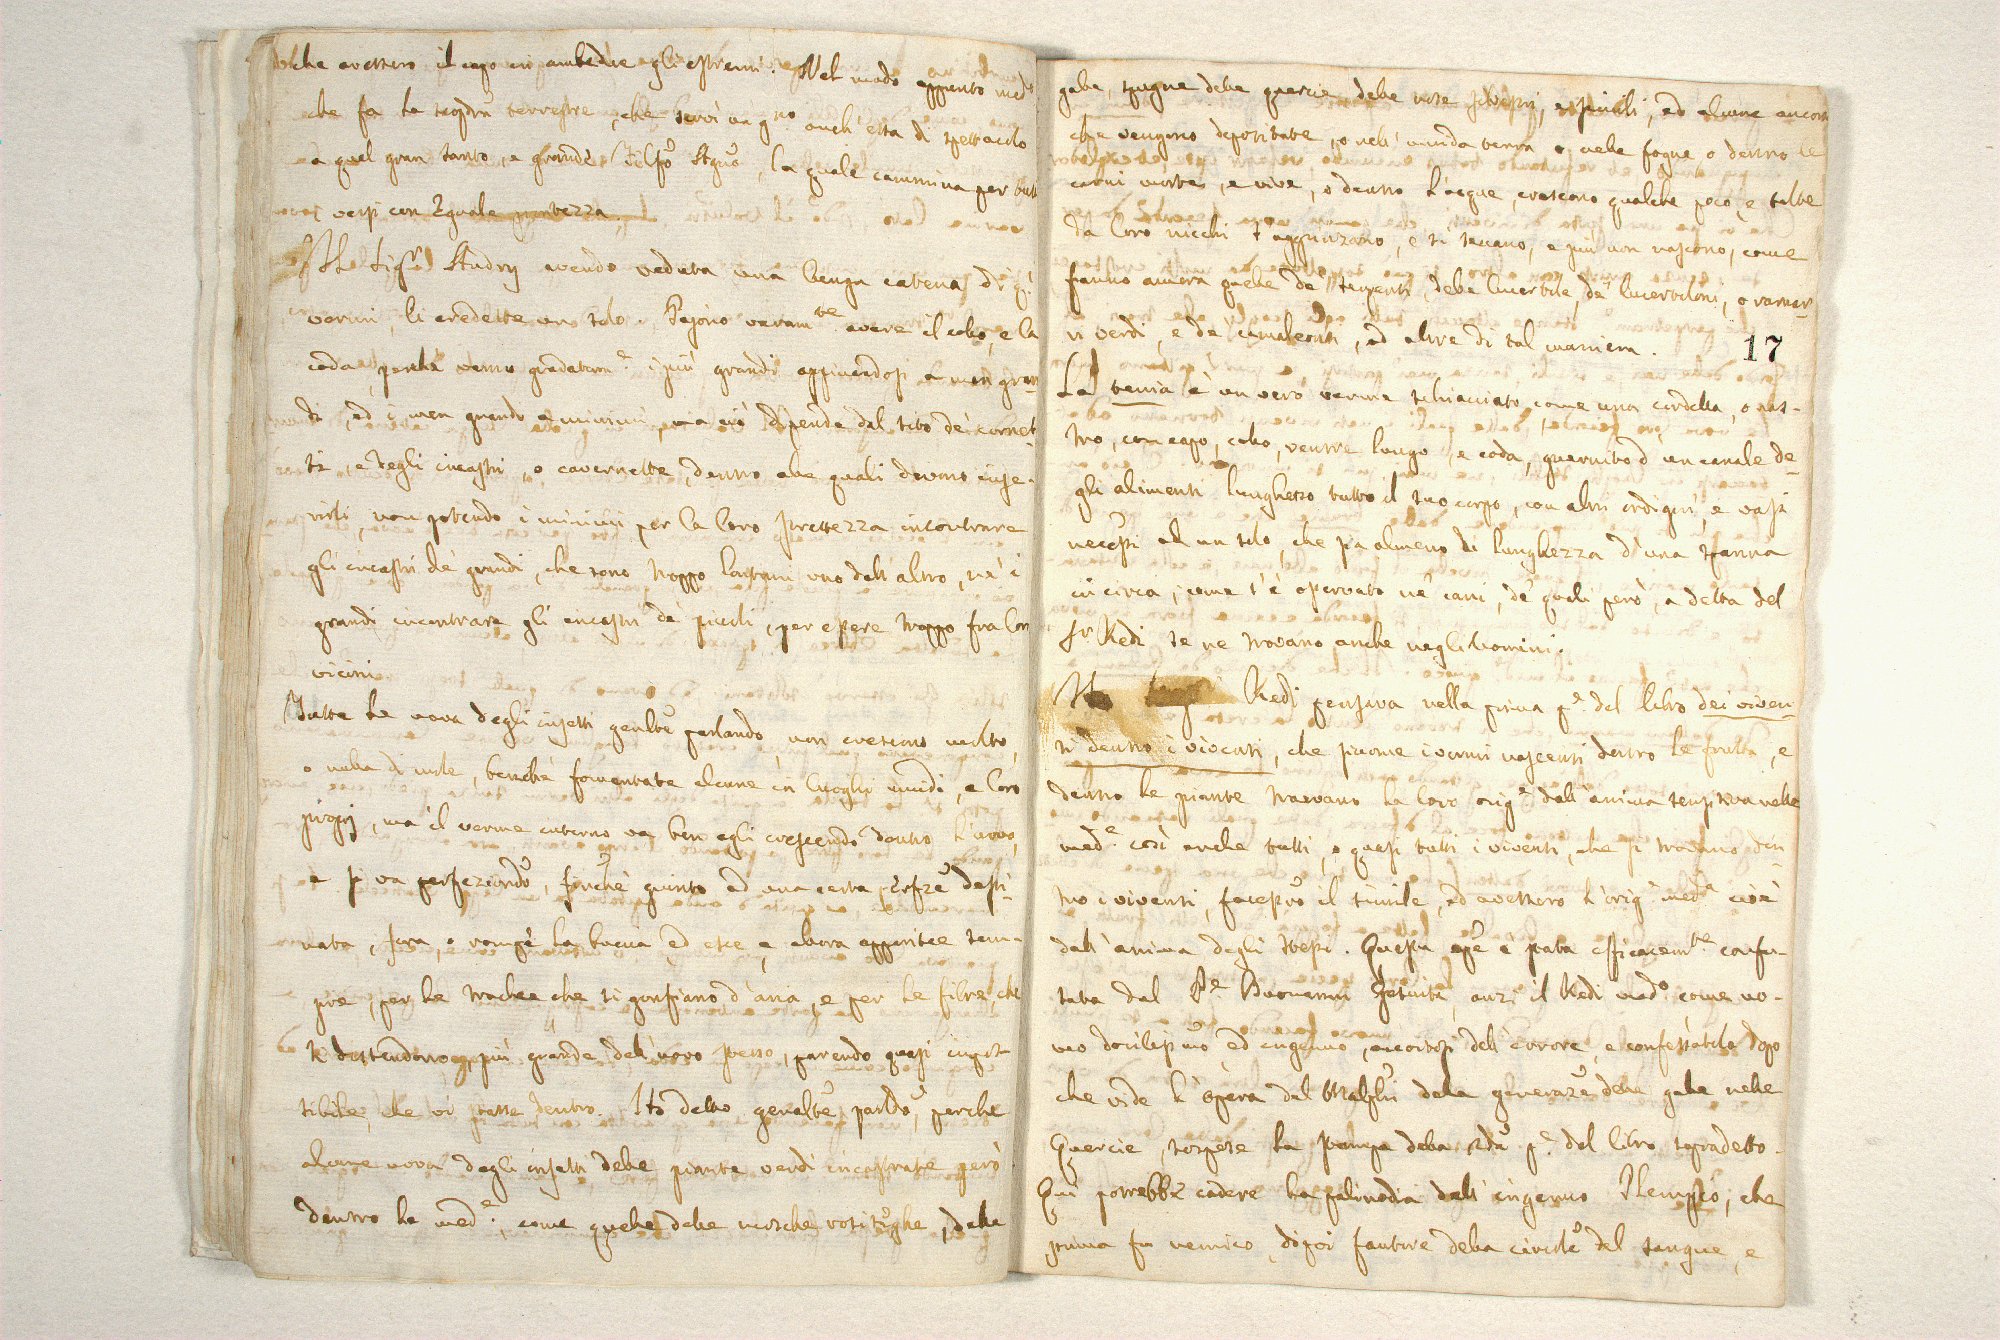 che avessero il capo in ambedue gli estremi. Nel modo appunto med.º
che fa la scopra terrestre, che servì un g.no anch'essa di spettacolo
a quel gran santo, e grande Filos.º Ag.º, la quale cammina per tutti
versi con eguale prestezza.
Il Sig.r Andry avendo veduta una lunga catena di q.i
vermi, li credette un solo. Pajono veram.te avere il collo, e la
coda, perchè vanno gradatam.e i più grandi appiccandosi a men gran-
di, ed i men grandi a minimi, ma ciò dipende dal sito de' cornet-
ti, e degli incastri, o cavernette, dentro alle quali devono inse-
rirli, non potendo i minimi per la loro strettezza incontrare
gli incastri de' grandi, che sono troppo lontani uno dall'altro, nè i
grandi incontrare gli incastri de' piccoli, per essere troppo fra loro
vicini.
Tutte le uova degli insetti gen.lte parlando non crescono molto,
o nulla di mole, benchè fomentate alcune in luoghi umidi, e loro
proprj, ma il verme interno va ben egli crescendo dentro l'uovo,
e si va perfezion.do, finchè giunto ad una certa perfz.e desti-
nata, fora, o rompe la buccia ed esce, e allora apparisce sem-
pre, per le trachee che si gonfiano d'aria, e per le fibre che
si distendono, più grande dell'uovo stesso, parendo quasi impos-
sibile, che vi stasse dentro. Ho detto gen.lte parl.do, perche
alcune uova degli insetti delle piante verdi incastrate però
dentro le med.e, come quelle delle mosche rosisughe, delle
galle, spugne delle quercie delle viti silvestri, e simili, ed alcune ancora
che vengono depositate, o nell'umida terra o nelle fogne o dentro le
carni morte, e vive, o dentro l'acque, crescono qualche poco, e talvolta
da loro nicchi s'aggrinzano, e si seccano, e più non nascono, come
fanno ancora quelle de' serpenti, delle lucertole, de' lucertoloni, o ramar-
ri verdi, e de' camaleonti, ed altre di tal maniera.
17
La tenia è un vero verme schiacciato come una cordella, o nas-
tro, con capo, collo, ventre lungo, e coda, guernito d'un canale de-
gli alimenti lunghesso tutto il suo corpo, con altri ordigni, e vasi
necess.i ad un solo, che sia almeno di lunghezza d'una spanna
in circa, come s'è osservato ne' cani, de' quali però, a detta del
S.r Redi se ne trovano anche negli Uomini.
Redi pensava nella prima p.e del libro dei viven-
ti dentro i viventi, che siccome i vermi nascenti dentro le frutta, e
dentro le piante traevano la loro orig.e dall'anima sensitiva nelle
med.e così anche tutti, o quasi tutti i viventi, che si trovano den-
tro i viventi, facess.ro il simile, ed avessero l'orig.e med.e cioè
dall'anima degli stessi. Questa op.e è stata efficacem.te confu-
tata dal P.e Buonanni Gesuita, anzi il Redi med.º come uo-
mo docilissimo ed ingenuo, accortosi dell'errore, e confessatolo dopo
che vide l'opera dal Malpighi della generaz.e delle galle nelle
Quercie, sospese la stampa della 2.da p.e del libro sopradetto.
Qui potrebbe cadere la palinodia dell'ingenuo Plempio, che
prima fu nemico, dipoi fautore della circol.e del sangue, e